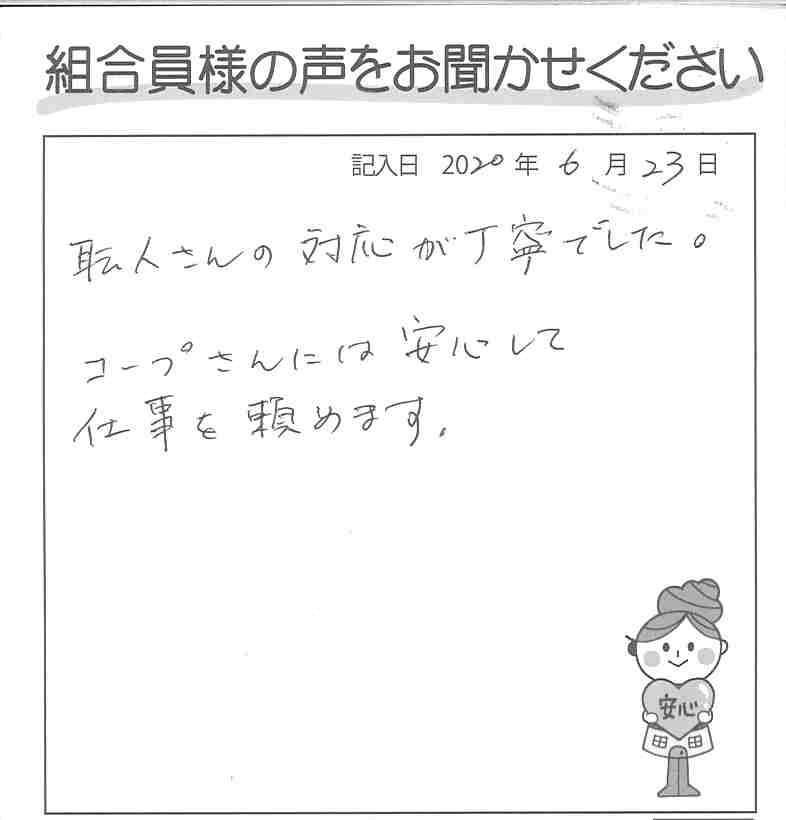 組合員様の声をお聞かせください
記入日 2020年6月23日
耺人さんの対応が丁寧でした。
コープさんには安心して
仕事を頼めます。
安心